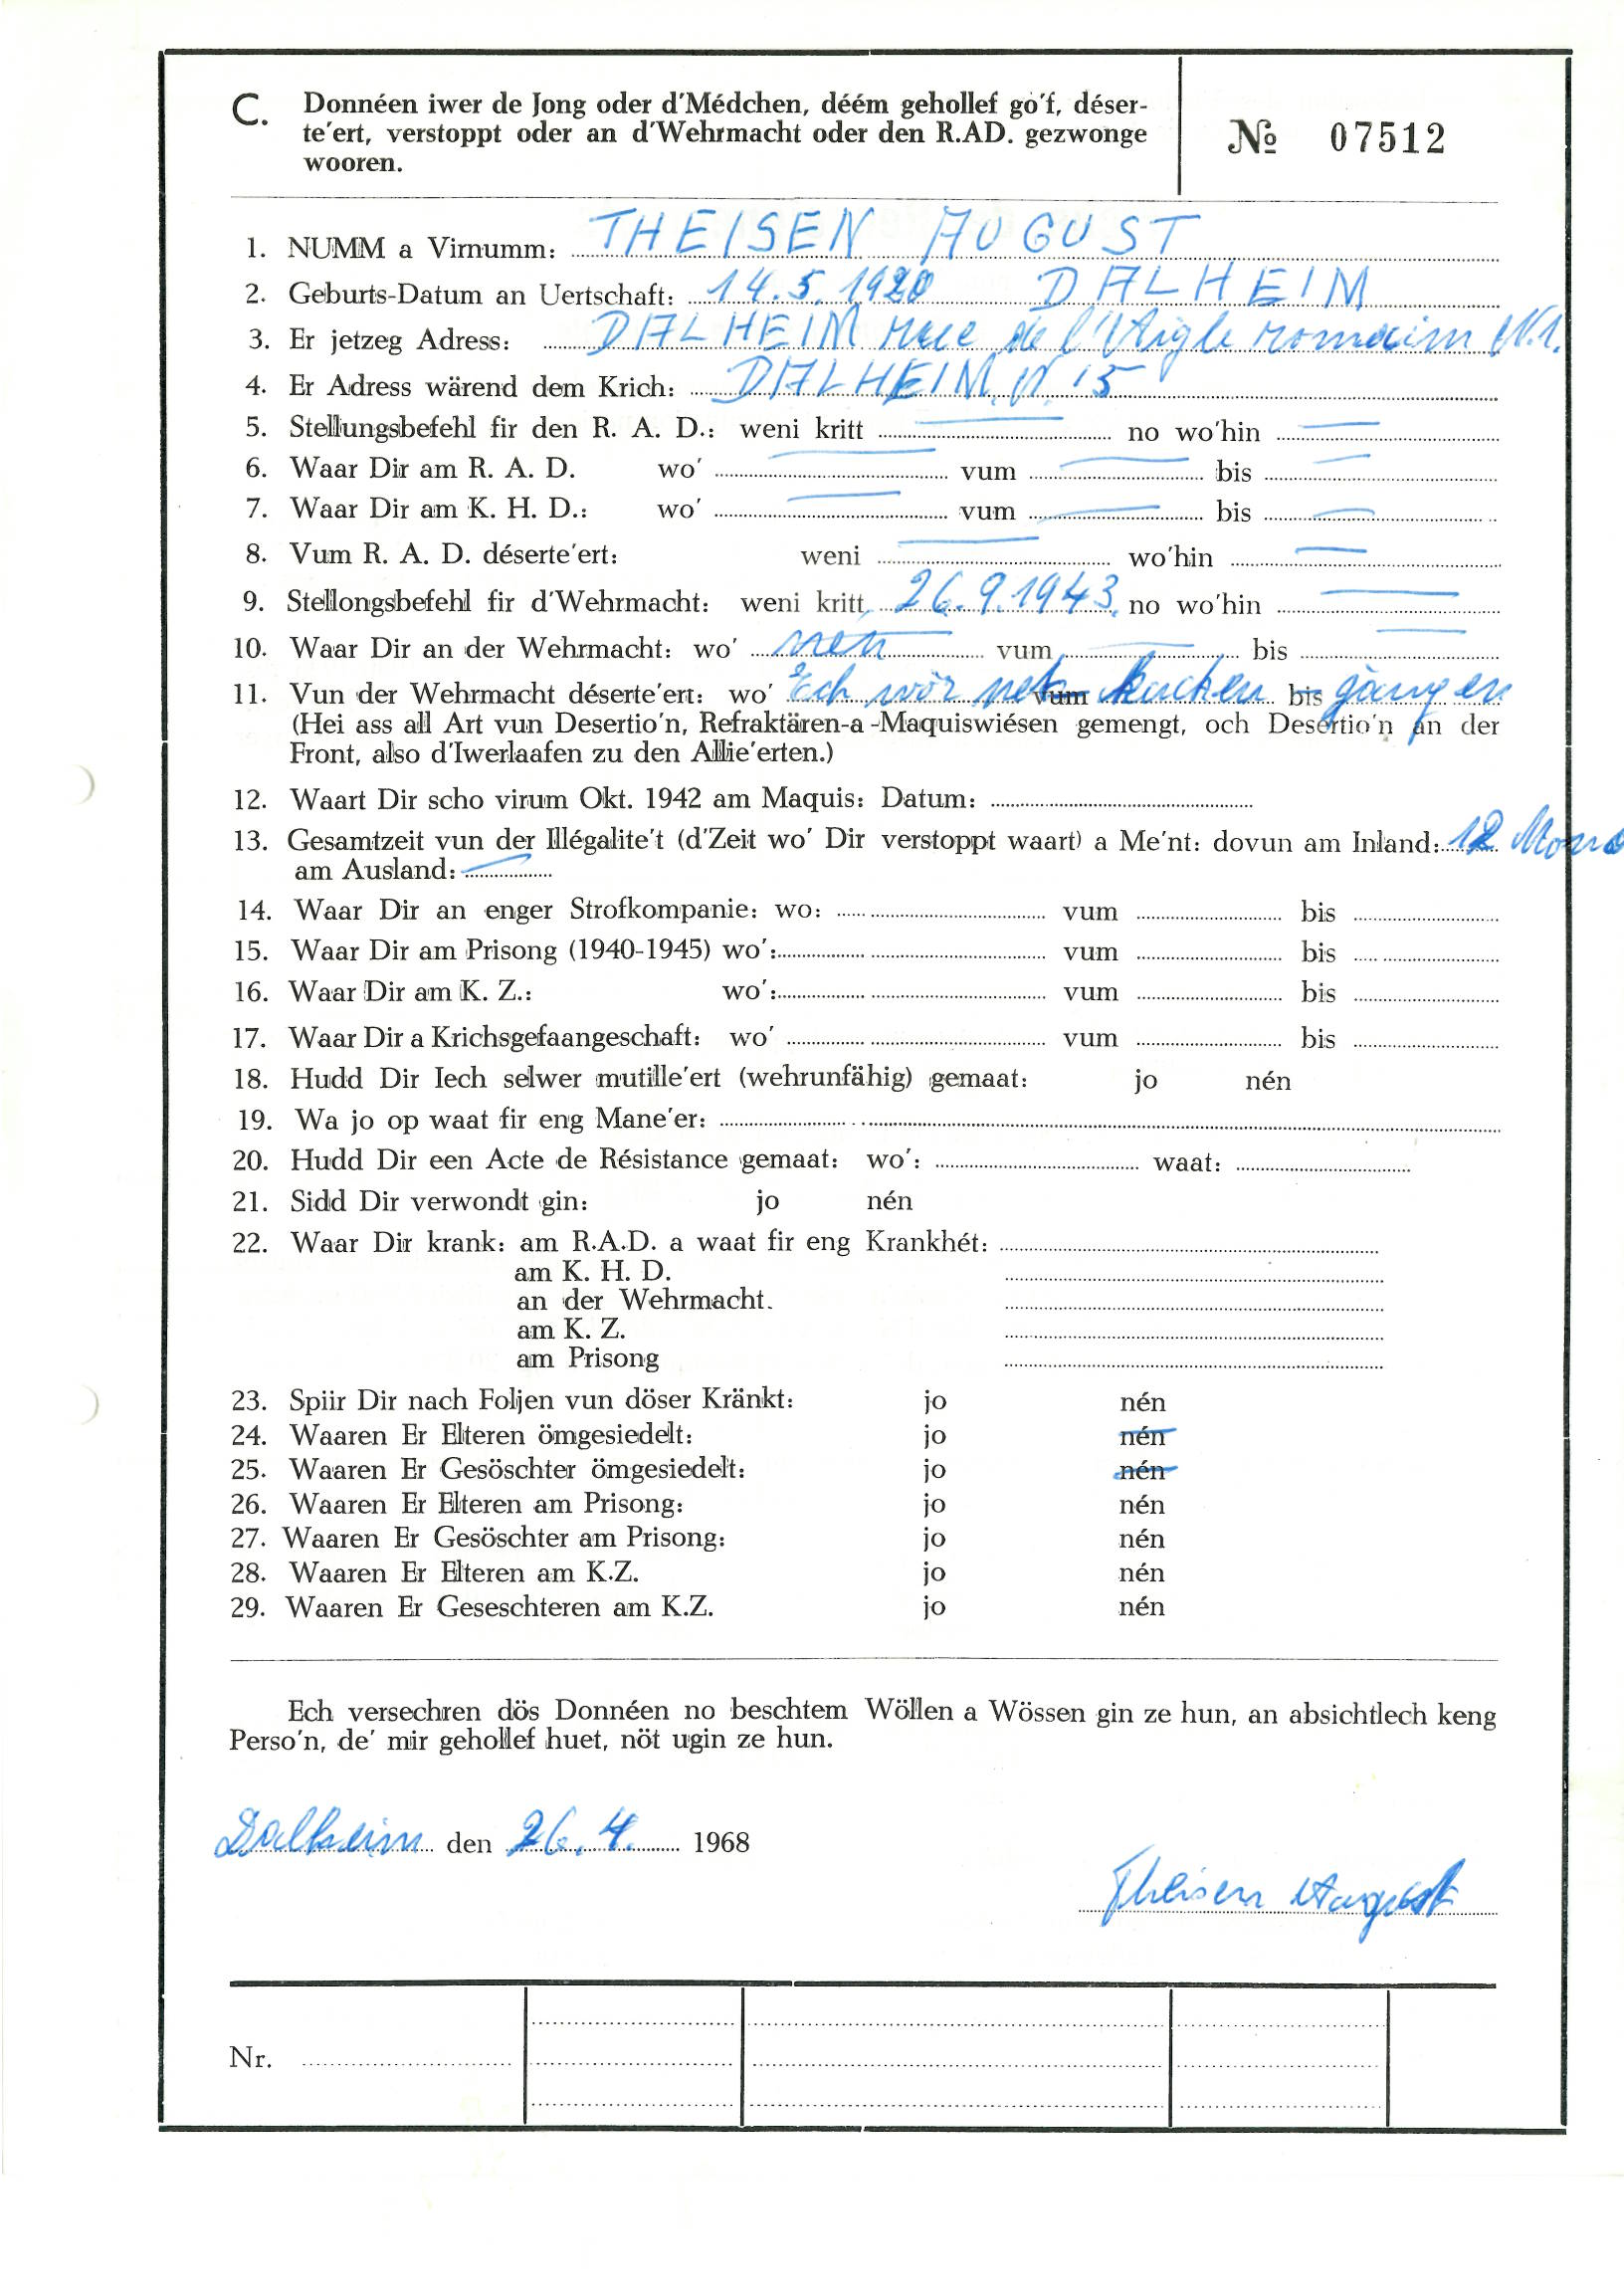 C. Donnéen iwer de Jong oder d'Médchen, déém gehollef go'f, déser-
te'ert, verstoppt oder an d'Wehrmacht oder den R.AD. gezwonge
wooren.
№ 07512
1. NUMM a Virnumm: THEISEN AUGUST
2. Geburts-Datum an Uertschaft: 14.5.1920 DALHEIM
3. Er jetzeg Adress: DALHEIM rue de l'Aigle romain N.1.
4. Er Adress wärend dem Krich: DALHEIM. N. 15
5. Stellungsbefehl fir den R. A. D.: weni kritt — no wo'hin —
6. Waar Dir am R. A. D. wo' — vum — bis —
7. Waar Dir am K. H. D.: wo' — vum — bis —
8. Vum R. A. D. déserte'ert: weni — wo'hin —
9. Stellongsbefehl fir d'Wehrmacht: weni kritt 26.9.1943. no wo'hin —
10. Waar Dir an der Wehrmacht: wo' nen vum — bis —
11. Vun der Wehrmacht déserte'ert: wo' Ech wor net vum bis gangen
(Hei ass all Art vun Desertio'n, Refraktären-a-Maquiswiésen gemengt, och Desertio'n an der
Front, also d'Iwerlaafen zu den Allie'erten.)
12. Waart Dir scho virum Okt. 1942 am Maquis: Datum:
13. Gesamtzeit vun der Illégalite't (d'Zeit wo' Dir verstoppt waart) a Me'nt: dovun am Inland: 12
am Ausland: —
14. Waar Dir an enger Strofkompanie: wo: vum bis
15. Waar Dir am Prisong (1940-1945) wo': vum bis
16. Waar Dir am K. Z.: wo': vum bis
17. Waar Dir a Krichsgefaangeschaft: wo' vum bis
18. Hudd Dir Iech selwer mutille'ert (wehrunfähig) gemaat: jo nén
19. Wa jo op waat fir eng Mane'er:
20. Hudd Dir een Acte de Résistance gemaat: wo': waat:
21. Sidd Dir verwondt gin: jo nén
22. Waar Dir krank: am R.A.D. a waat fir eng Krankhét:
am K. H. D.
an der Wehrmacht.
am K. Z.
am Prisong
23. Spiir Dir nach Foljen vun döser Kränkt: jo nén
24. Waaren Er Elteren ömgesiedelt: jo nén
25. Waaren Er Gesöschter ömgesiedelt: jo nén
26. Waaren Er Elteren am Prisong: jo nén
27. Waaren Er Gesöschter am Prisong: jo nén
28. Waaren Er Elteren am K.Z. jo nén
29. Waaren Er Geseschteren am K.Z. jo nén
Ech versechren dös Donnéen no beschtem Wöllen a Wössen gin ze hun, an absichtlech keng
Perso'n, de' mir gehollef huet, nöt ugin ze hun.
Dalheim den 26.4. 1968
Theisen August
Nr.